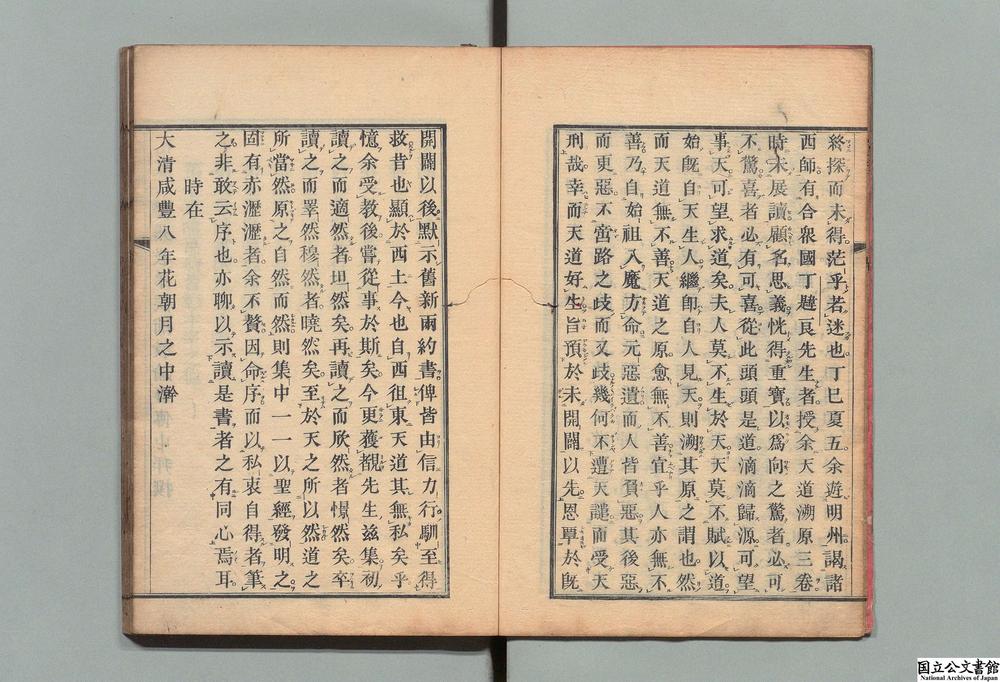 終探而未得茫乎若迷也丁巳夏五余遊明州謁諸
西師有合衆國丁韙良先生者授余天道溯原三卷
時未展讀顧名思義恍得重寶以爲向之驚者必可
不驚喜者必有可喜從此頭頭是道滴滴歸源可望
事天可望求道矣夫人莫不生於天天莫不賦以道
始旣自天生人繼卽自人見天則溯其原之謂也然
而天道無不善天道之原愈無不善宜乎人亦無不
善乃自始祖入魔方命元惡遺而人皆負惡其後惡
而更惡不啻路之歧而又歧幾何不遭天譴而受天
刑哉幸而天道好生旨預於未開闢以先恩覃於旣
開闢以後默示舊新兩約書俾皆由信力行馴至得
救昔也顯於西土今也自西徂東天道其無私矣乎
憶余受教後嘗從事於斯矣今更獲觀先生茲集初
讀之而適然者坦然矣再讀之而欣然者憬然矣卒
讀之而睪然穆然者曉然矣至於天之所以然道之
所當然原之自然而然則集中一一以聖經發明之
固有亦瀝瀝者余不贅因命序而以私衷自得者筆
之非敢云序也亦聊以示讀是書者之有同心焉耳
時在
大清咸豐八年花朝月之中澣
国立公文書館
National Archives of Japan